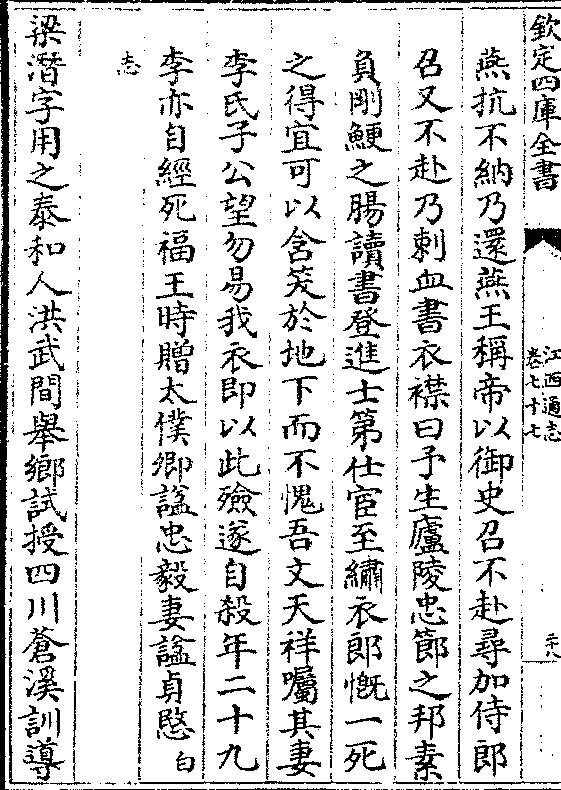 欽定四庫全書
江西通志
卷七十七
二八
燕抗不納乃還燕王稱帝以御史召不赴尋加侍郎
召又不赴乃刺血書衣襟曰予生廬陵忠節之邦素
負剛鯁之腸讀書登進士第仕宦至繡衣郎慨一死
之得宜可以含笑於地下而不愧吾文天祥囑其妻
李氏子公望勿易我衣即以此殮遂自殺年二十九
李亦自經死福王時贈太僕卿諡忠毅妻諡貞愍白
志
梁潛字用之泰和人洪武間舉鄉試授四川蒼溪訓導